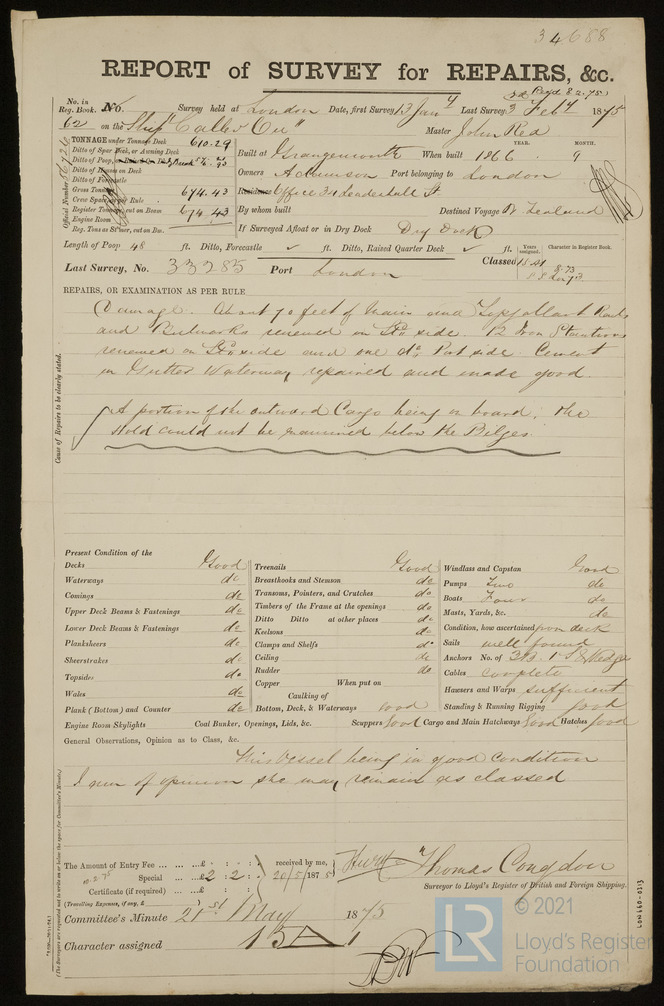 34688
REPORT of SURVEY for REPAIRS, &c.
Recd. 8.2.75
No. in Reg. Book. No. Survey held at London Date, first Survey 13 Jany Last Survey 3 Feby 1875
62 on the Ship "
Master John
TONNAGE under Tonnage Deck 610.29
Ditto of Spar Deck, or Awning Deck
Ditto of Poop,
Ditto of Houses on Deck
Ditto of Forecastle
Gross Tonnage 674.43
Crew Space
Register Tonnage, cut out on Beam 674.43
Engine Room
Reg. Tons as
Official Number
YEAR. MONTH.
Built at Grangemouth When built 1866 9
Owners Adamson Port belonging to London
Residence Office 34 Leadenhall St
By whom built Destined Voyage N. Zealand
If Surveyed Afloat or in Dry Dock Dry Dock
Length of Poop 48 ft. Ditto, Forecastle ft. Ditto, Raised Quarter Deck ft. Years assigned. Character in Register Book.
Last Survey, No. 33285 Port London Classed 15 A1
8.73
REPAIRS, OR EXAMINATION AS PER RULE
Damage. About 70 feet of Main and Topgallant Rails
and Bulwarks renewed on Std side. 12 Iron Stantions
renewed on Std side and one do Port side. Cement
in Gutter Waterway repaired and made good.
A portion of the outward Cargo being on board, the
Hold could not be examined below the Bilges
Cause of Repairs to be clearly stated.
Present Condition of the
Decks Good
Waterways do
Comings do
Upper Deck Beams & Fastenings do
Lower Deck Beams & Fastenings do
Planksheers do
Sheerstrakes do
Topsides do
Wales do
Plank (Bottom) and Counter do
Treenails Good
Breasthooks and Stemson do
Transoms, Pointers, and Crutches do
Timbers of the Frame at the openings do
Ditto Ditto at other places do
Keelsons do
Clamps and Shelfs do
Ceiling do
Rudder do
Copper When put on
Caulking of
Bottom, Deck, & Waterways Good
Windlass and Capstan Good
Pumps Two do
Boats Four do
Masts, Yards, &c. do
Condition, how ascertained from deck
Sails well found
Anchors No. of 3B. 1S & Kedges
Cables complete
Hawsers and Warps sufficient
Standing & Running Rigging good
Engine Room Skylights Coal Bunker, Openings, Lids, &c. Scuppers Good Cargo and Main Hatchways Good Hatches good
General Observations, Opinion as to Class, &c.
This Vessel being in good condition
I am of opinion she may remain as classed
The Amount of Entry Fee ... ... ... £ : :
Special ... ... £ 2 : 2 : received by me, 20/5/1875
Certificate (if required) ... £ : :
(Travelling Expenses, if any, £ )
Thomas Congdon
Surveyor to Lloyd's Register of British and Foreign Shipping.
Committee's Minute 21st May 1875
Character assigned 15 A 1
(The Surveyors are requested not to write on or below the space for Committee's Minute.)
LON660-0313
LR
© 2021
Lloyd's Register
Foundation